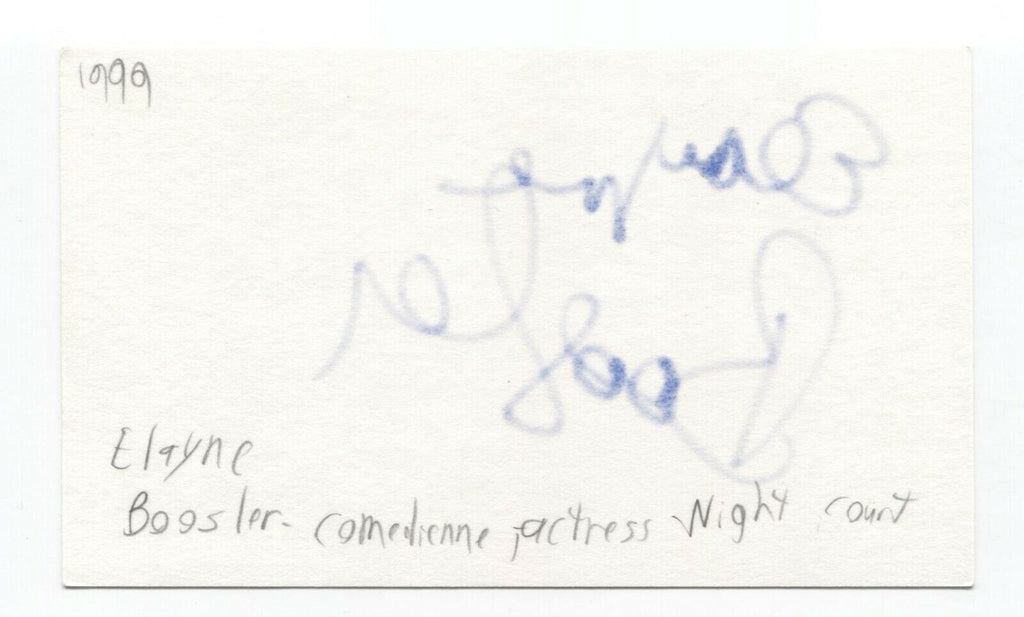 1999
Elayne
Boosler
Elayne
Boosler- comedienne, actress Night Court